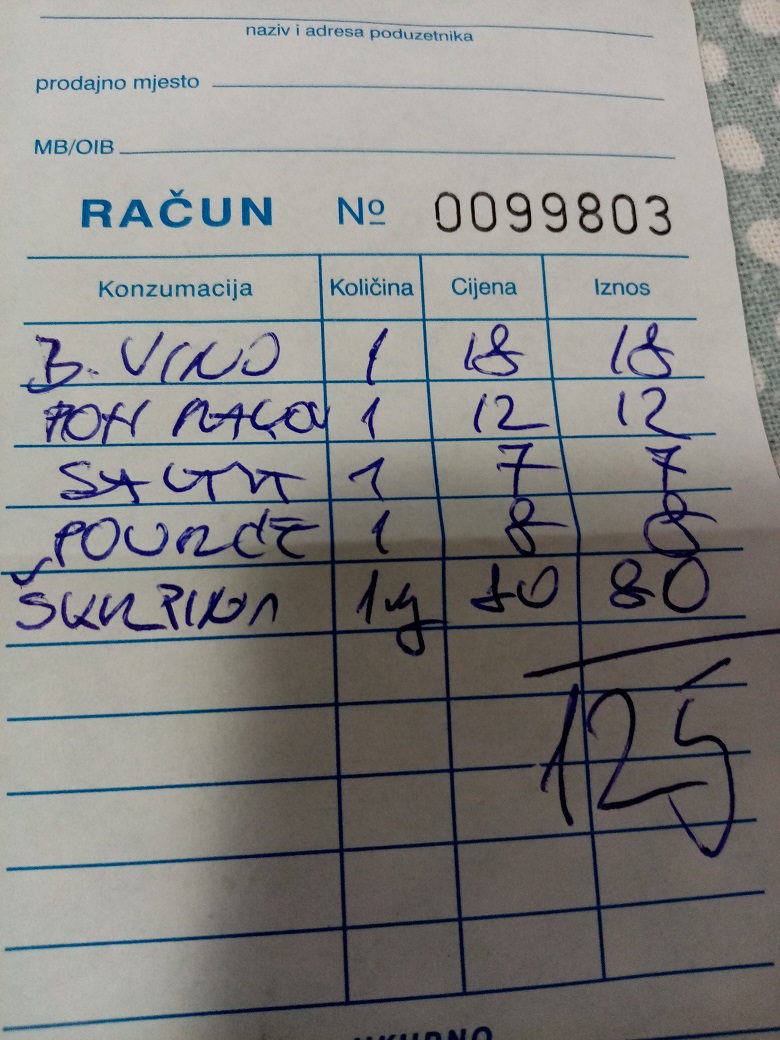 naziv i adresa poduzetnika
prodajno mjesto
MB/OIB
RAČUN Nº 0099803
Konzumacija Količina Cijena Iznos
B. VINO 1 18 18
1 12 12
SALATA 1 7 7
POVRĆE 1 8 8
ŠKRPINA 1kg 80 80
125
UKUPNO